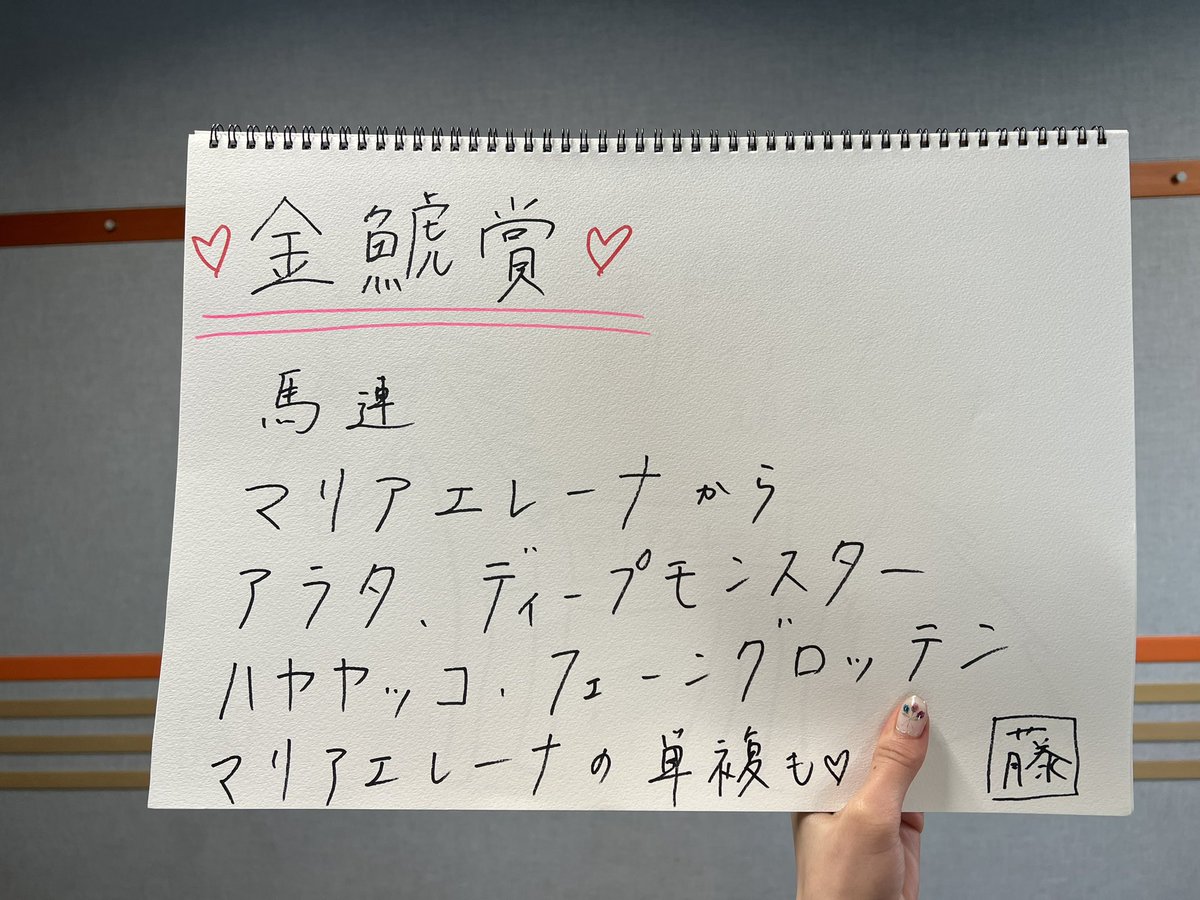 ♡金鯱賞♡
馬連
マリアエレーナから
アラタ、ディープモンスター
ハヤヤッコ、フェーングロッテン
マリアエレーナの単複も♡
藤